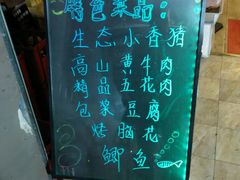 特色菜品:
生态小香猪
高山黄牛肉
精品五花肉
包浆豆腐
烤脑花
鲫鱼